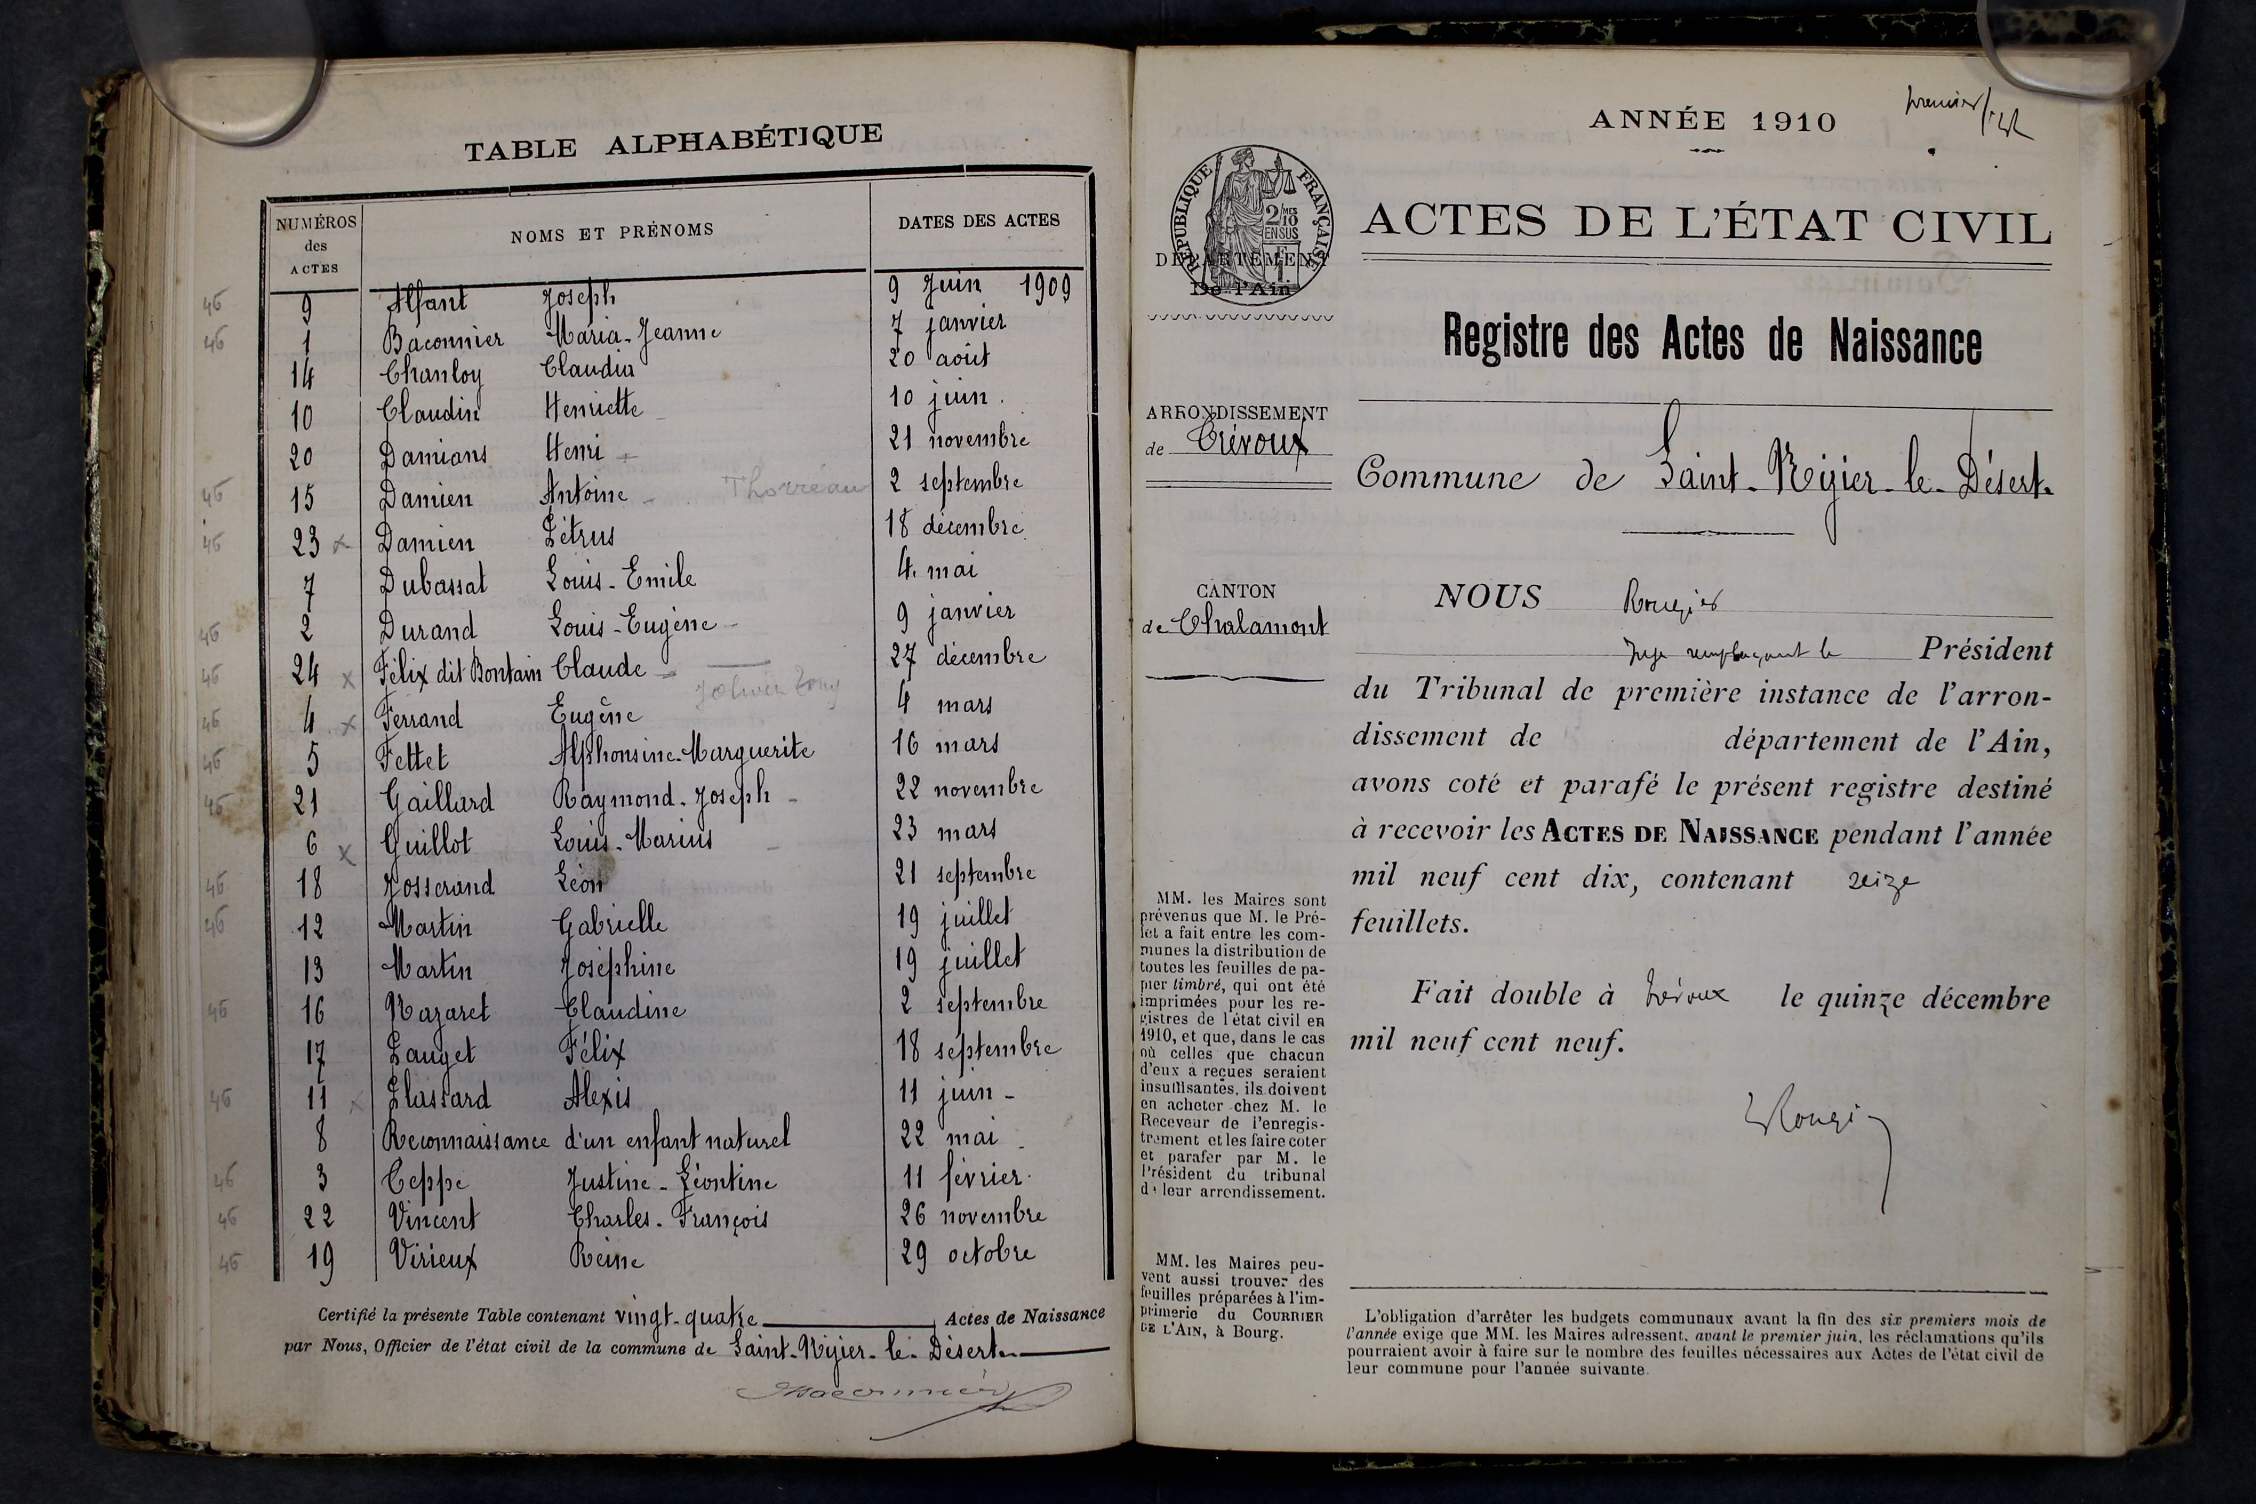 TABLE ALPHABÉTIQUE
NUMÉROS des ACTES NOMS ET PRÉNOMS DATES DES ACTES
46 9 Alfant Joseph 9 Juin 1909
46 1 Baconnier Maria-Jeanne 7 janvier
14 Chanloy Claudia 20 août
10 Claudin Henriette 10 juin.
20 Damians Henri 21 novembre
46 15 Damien Antoine Thorreau 2 septembre
46 23 x Damien Pétrus 18 décembre
7 Dubassat Louis-Emile 4. mai
46 2 Durand Louis-Eugène 9 janvier
46 24 x Félix dit Bontain Claude 27 décembre
46 4 x Ferrand Eugène 4 mars
46 5 Fettet Alphonsine-Marguerite 16 mars
46 21 Gaillard Raymond-Joseph 22 novembre
6 x Guillot Louis-Marius 23 mars
46 18 Josserand Léon 21 septembre
46 12 Martin Gabrielle 19 juillet
13 Martin Joséphine 19 juillet
46 16 Nazaret Claudine 2 septembre
17 Pauget Félix 18 septembre
46 11 x Plassard Alexis 11 juin
8 Reconnaissance d'un enfant naturel 22 mai
46 3 Teppe Justine-Léontine 11 février
46 22 Vincent Charles-François 26 novembre
46 19 Virieux Reine 29 octobre
Certifié la présente Table contenant vingt-quatre Actes de Naissance
par Nous, Officier de l'état civil de la commune de Saint-Nizier-le-Désert
Baconnier
premier
ANNÉE 1910
RÉPUBLIQUE FRANÇAISE
2/10 MES
EN SUS
ACTES DE L'ÉTAT CIVIL
DÉPARTEMENT
De l'Ain
Registre des Actes de Naissance
ARRONDISSEMENT
de Trévoux
Commune de Saint-Nizier-le-Désert.
CANTON
de Chalamont
NOUS Rougier
Juge remplaçant le Président
du Tribunal de première instance de l'arron-
dissement de département de l'Ain,
avons coté et parafé le présent registre destiné
à recevoir les ACTES DE NAISSANCE pendant l'année
mil neuf cent dix, contenant seize
feuillets.
Fait double à Trévoux le quinze décembre
mil neuf cent neuf.
Rougier
MM. les Maires sont
prévenus que M. le Pré-
fet a fait entre les com-
munes la distribution de
toutes les feuilles de pa-
pier timbré, qui ont été
imprimées pour les re-
gistres de l'état civil en
1910, et que, dans le cas
où celles que chacun
d'eux a reçues seraient
insuffisantes, ils doivent
en acheter chez M. le
Receveur de l'enregis-
trement et les faire coter
et parafer par M. le
Président du tribunal
de leur arrondissement.
MM. les Maires peu-
vent aussi trouver des
feuilles préparées à l'im-
primerie du COURRIER
DE L'AIN, à Bourg.
L'obligation d'arrêter les budgets communaux avant la fin des six premiers mois de
l'année exige que MM. les Maires adressent, avant le premier juin, les réclamations qu'ils
pourraient avoir à faire sur le nombre des feuilles nécessaires aux Actes de l'état civil de
leur commune pour l'année suivante.